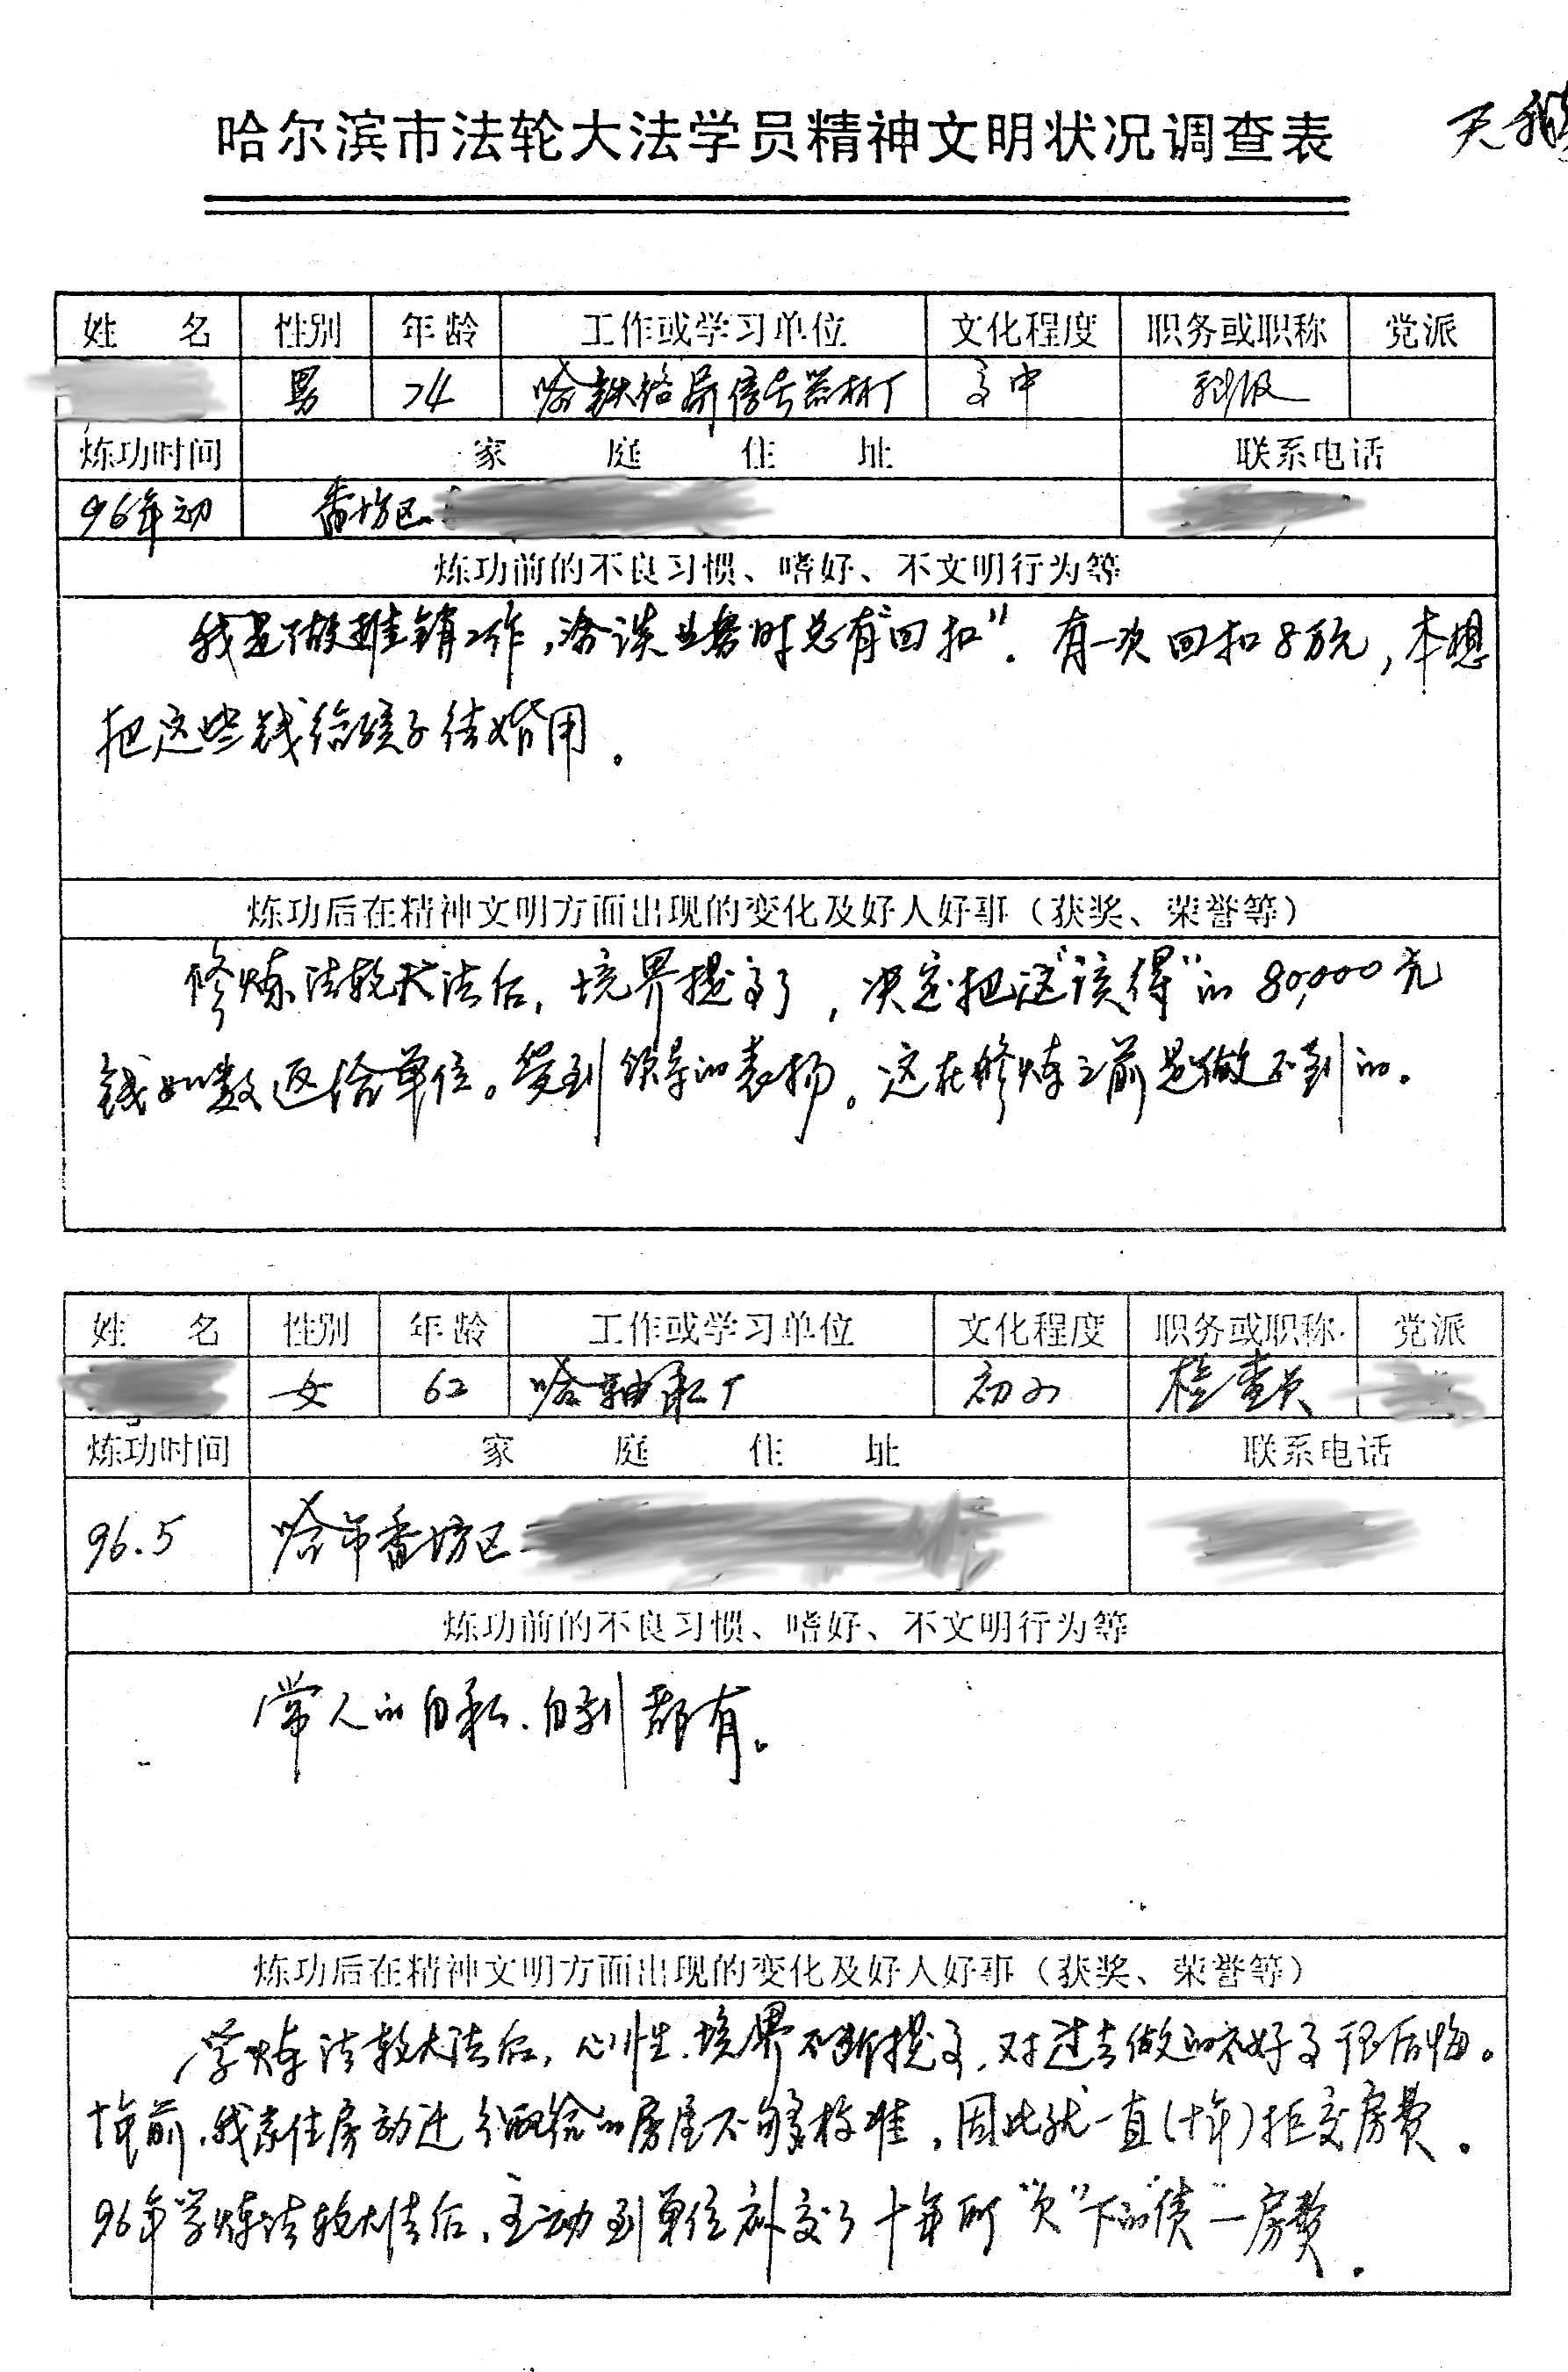 哈尔滨市法轮大法学员精神文明状况调查表
天
姓 名 性别 年龄 工作或学习单位 文化程度 职务或职称 党派
男 74 哈铁路局信号器材厂 高中 科级
炼功时间 家庭住址 联系电话
96年初 香坊区
炼功前的不良习惯、嗜好、不文明行为等
我是做推销工作,洽谈业务时总有"回扣"。有一次回扣8万元,本想
把这些钱给孩子结婚用。
炼功后在精神文明方面出现的变化及好人好事（获奖、荣誉等）
修炼法轮大法后,境界提高了,决定把这"该得"的80,000元
钱如数返给单位。受到领导的表扬。这在修炼之前是做不到的。
姓 名 性别 年龄 工作或学习单位 文化程度 职务或职称 党派
女 62 哈轴承厂 初小 检查员
炼功时间 家庭住址 联系电话
96.5 哈市香坊区
炼功前的不良习惯、嗜好、不文明行为等
常人的自私、自利都有。
炼功后在精神文明方面出现的变化及好人好事（获奖、荣誉等）
学炼法轮大法后,心性、境界不断提高,对过去做的不好事很后悔。
十年前,我家住房动迁分配给的房屋不够标准,因此就一直(十年)拒交房费。
96年学炼法轮大法后,主动到单位补交了十年所"欠"下的"债"—房费.